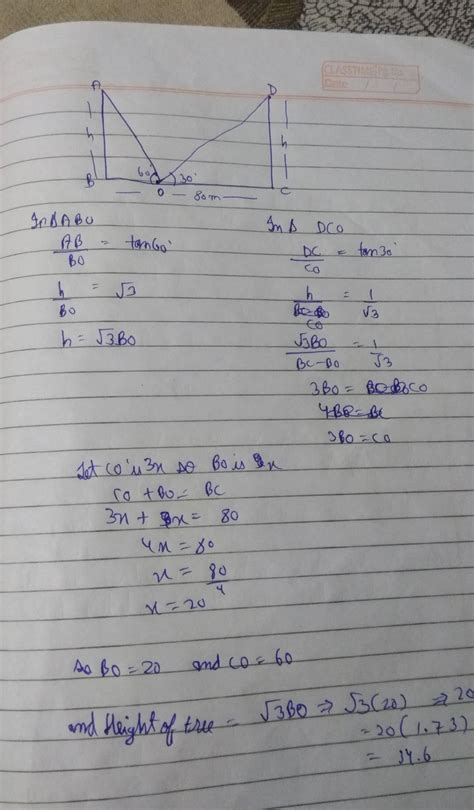 CLASSTIME Pg. No.
Date / /
A D
h h
60° 30°
B O C
80m
In Δ ABO
AB/BO = tan60°
h/BO = √3
h = √3BO
In Δ DCO
DC/CO = tan30°
h/CO = 1/√3
√3BO/BC-BO = 1/√3
3BO = CO
4BO = BC
3BO = CO
Let CO is 3x so BO is x
CO + BO = BC
3x + x = 80
4x = 80
x = 80/4
x = 20
so BO = 20 and CO = 60
and Height of tree = √3BO ⇒ √3(20) ⇒ 20
= 20(1.73)
= 34.6